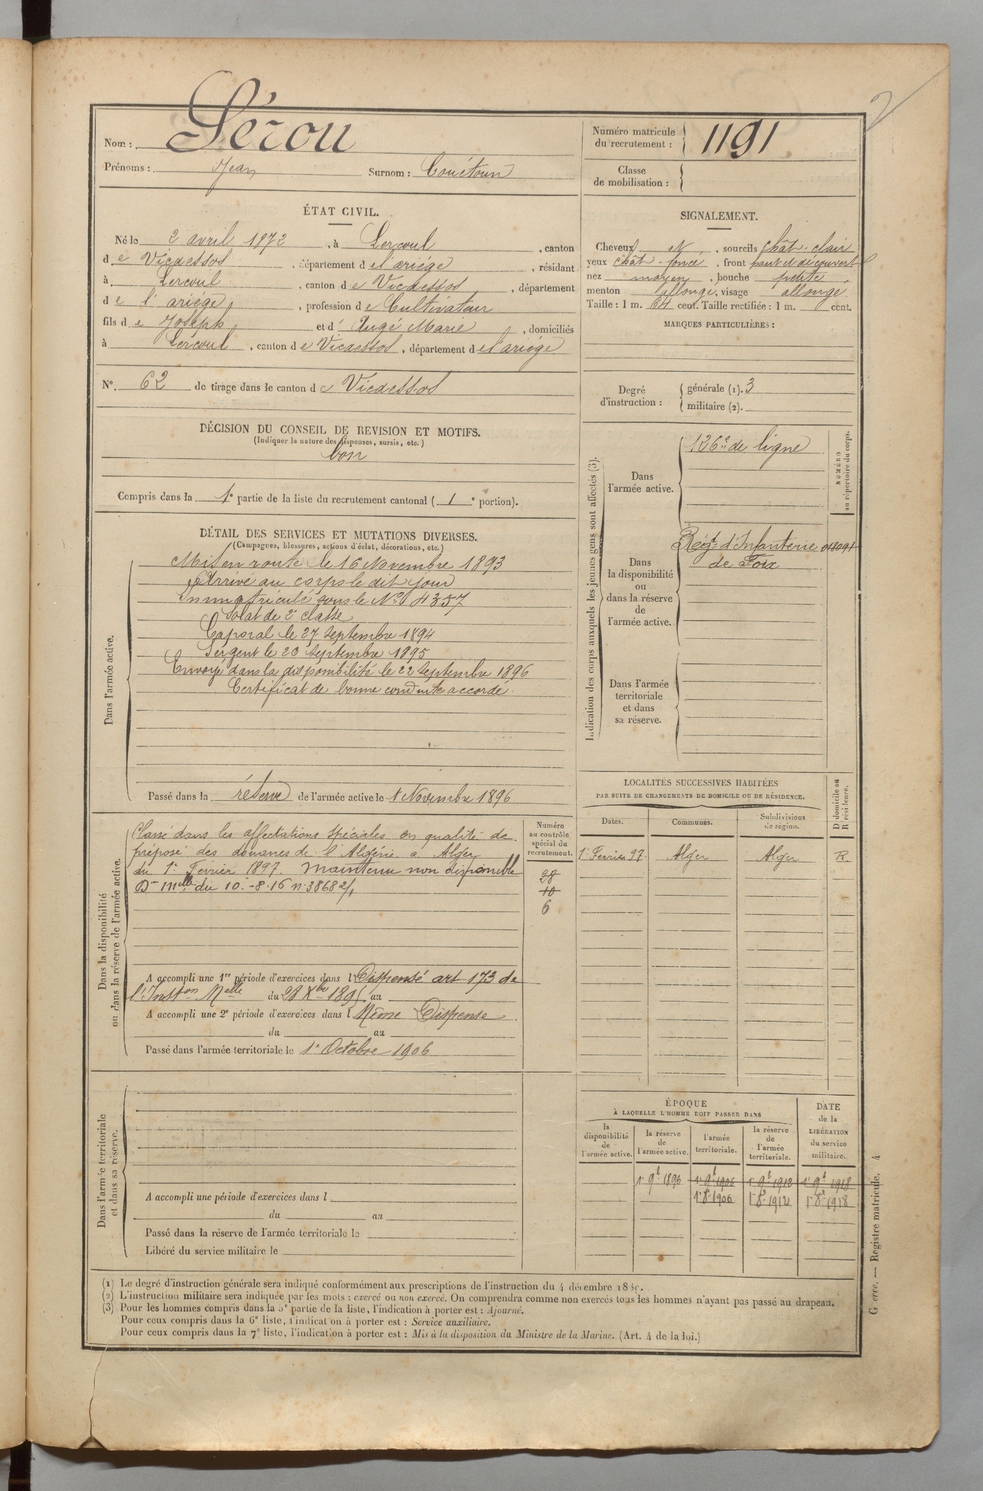 2
Nom : Lérou
Prénoms : Jean Surnom : Couétoun
Numéro matricule du recrutement : 1191
Classe de mobilisation :
ÉTAT CIVIL.
Né le 2 avril 1872, à Lercoul, canton
de Vicdessos, département de l'ariége, résidant
à Lercoul, canton de Vicdessos, département
de l'ariége, profession de Cultivateur
fils de Joseph et d' Augé Marie, domiciliés
à Lercoul, canton de Vicdessos, département de l'ariége
N° 62 de tirage dans le canton de Vicdessos
SIGNALEMENT.
Cheveux N, sourcils chât-clair
yeux chât-foncé, front haut et découvert
nez moyen, bouche petite
menton allongé, visage allongé
Taille : 1 m. 64 cent. Taille rectifiée : 1 m. cent.
MARQUES PARTICULIÈRES :
Degré d'instruction : générale (1). 3
militaire (2).
DÉCISION DU CONSEIL DE REVISION ET MOTIFS.
(Indiquer la nature des dispenses, sursis, etc.)
bon
Compris dans la 1e partie de la liste du recrutement cantonal (1e portion).
DÉTAIL DES SERVICES ET MUTATIONS DIVERSES.
(Campagnes, blessures, actions d'éclat, décorations, etc.)
Dans l'armée active.
Mis en route le 16 Novembre 1893
Arrivé au corps le dit jour
Immatriculé sous le N° 4357
Soldat de 2e classe
Caporal le 27 Septembre 1894
Sergent le 20 Septembre 1895
Envoyé dans la disponibilité le 22 Septembre 1896
Certificat de bonne conduite accordé
Passé dans la réserve de l'armée active le 1 Novembre 1896
Indication des corps auxquels les jeunes gens sont affectés (3).
NUMÉRO au répertoire du corps.
Dans l'armée active. 126e de ligne
Dans la disponibilité ou dans la réserve de l'armée active.
Regt d'Infanterie
de Foix
Dans l'armée territoriale et dans sa réserve.
Dans la disponibilité ou dans la réserve de l'armée active.
Classé dans les affectations spéciales en qualité de
préposé des douanes de l'Algérie a Alger
du 1er Fevrier 1897. Maintenu non disponible
Don Melle du 10-8-16 n° 38682/1
Numéro au contrôle spécial du recrutement.
28
10
6
A accompli une 1re période d'exercices dans l Dispensé art 173 de
l'Inston Melle du 28 Xbre 1895 au
A accompli une 2e période d'exercices dans l Même Dispense
du au
Passé dans l'armée territoriale le 1er Octobre 1906
LOCALITÉS SUCCESSIVES HABITÉES
PAR SUITE DE CHANGEMENTS DE DOMICILE OU DE RÉSIDENCE.
Dates. Communes. Subdivisions de région. D domicile ou R résidence.
1er Fevrier 97 Alger Alger R
Dans l'armée territoriale et dans sa réserve.
A accompli une période d'exercices dans l
du au
Passé dans la réserve de l'armée territoriale le
Libéré du service militaire le
ÉPOQUE
À LAQUELLE L'HOMME DOIT PASSER DANS
la disponibilité de l'armée active. la réserve de l'armée active. l'armée territoriale. la réserve de l'armée territoriale. DATE de la LIBÉRATION du service militaire.
1er 9bre 1896 1er 9bre 1906 1er 9bre 1912 1er 9bre 1918
1er 8bre 1906 1er 8bre 1912 1er 8bre 1918
(1) Le degré d'instruction générale sera indiqué conformément aux prescriptions de l'instruction du 4 décembre
(2) L'instruction militaire sera indiquée par les mots : exercé ou non exercé. On comprendra comme non exercés tous les hommes n'ayant pas passé au drapeau.
(3) Pour les hommes compris dans la 5e partie de la liste, l'indication à porter est : Ajourné.
Pour ceux compris dans la 6e liste, l'indication à porter est : Service auxiliaire.
Pour ceux compris dans la 7e liste, l'indication à porter est : Mis à la disposition du Ministre de la Marine. (Art. 4 de la loi.)
Guerre. — Registre matricule. 4